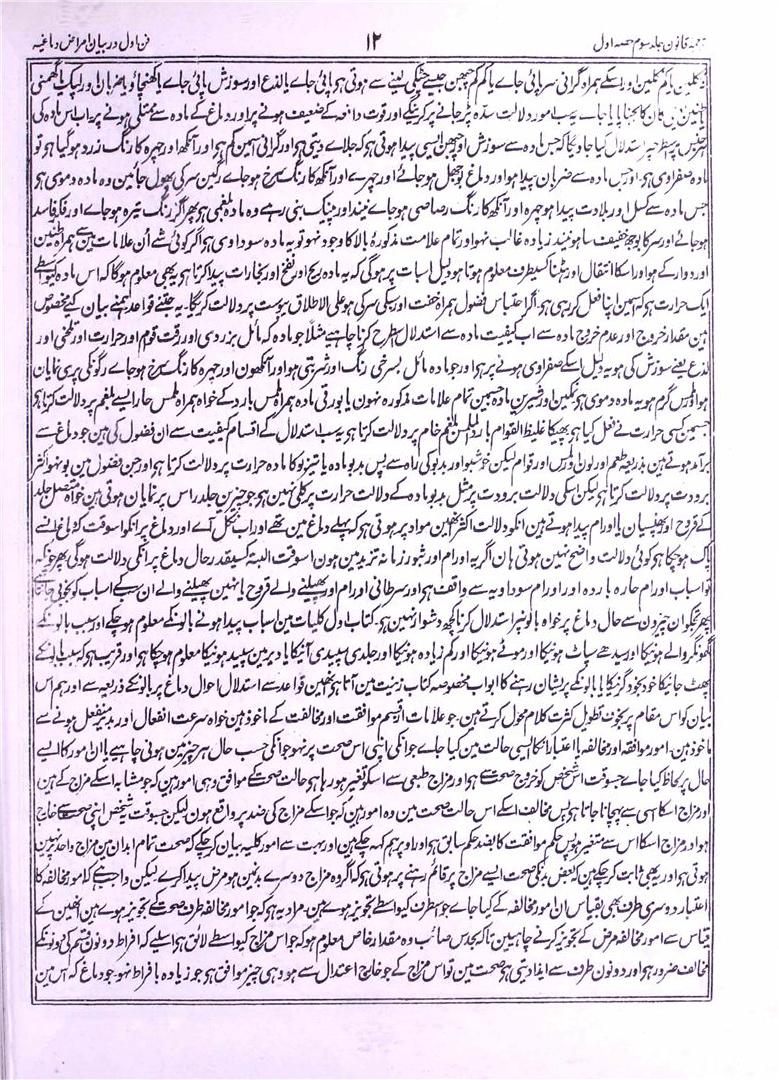 ترجمہ قانون جلد سوم حصہ اول
۱۲
فن اول در بیان امراض دماغیہ
نہ نکلین یا کم نکلین اور اسکے ہمراہ گرانی سر پائی جاے یا کم کم چبھن جیسے چٹکی لینے سے ہوتی ہو پائی جاے یا لذع اور سوزش پائی جاے یا کھنچاؤ یا ضربان اور لپک یا گھمنی
یا طنین یعنی کان کا بجنا پایا جاے یہ سب امور دلالت سدہ پڑ جانے پر کرینگے اور قوت دافعہ کے ضعیف ہونے پر اور دماغ کے مادہ سے ممتلی ہونے پر اب اس مادہ کی
جنس پر استدلال کیا جاویگا کہ جس مادہ سے سوزش اور چبھن ایسی پیدا ہوتی ہو کہ جلاے دیتی ہو اور گرانی اسمین کم ہو اور آنکھ اور چہرہ کا رنگ زرد ہو گیا ہو تو
مادہ صفراوی ہو اور جس مادہ سے ضربان پیدا ہو اور دماغ بوجھل ہو جائے اور چہرے اور آنکھ کا رنگ سرخ ہو جاے رگین سر کی پھول جائین وہ مادہ دموی ہو
جس مادہ سے کسل اور بلادت پیدا ہو چہرہ اور آنکھ کا رنگ رصاصی ہو جاے نیند اور پینک بنی رہے وہ مادہ بلغمی ہو پھر اگر رنگ تیرہ ہو جاے اور فکر فاسد
ہو جائے اور سر کا بوجھ خفیف سا ہو نیند زیادہ غالب نہو اور تمام علامت مذکورۂ بالا کا وجود نہو تو یہ مادہ سوداوی ہو اگر کوئی شے اُن علامات مین سے ہمراہ طنین
اور دوار کے ہو اور اسکا انتقال اور ہٹنا کسیطرف معلوم ہوتا ہو دلیل اس بات پر ہوگی کہ یہ مادہ ریح اور نفخ اور بخارات پیدا کرتا ہو یہ بھی معلوم ہوگا کہ اس مادہ کیواسطے
ایک حرارت ہو کہ اسمین اپنا فعل کر رہی ہو اگر احتباس فضول ہمراہ خفت اور سبکی سر کی ہو علی الاطلاق یبوست پر دلالت کریگا یہ جتنے قواعد ہمنے بیان کیے مخصوص
ہین مقدار خروج اور عدم خروج مادہ سے اب کیفیت مادہ سے استدلال اسطرح کرنا چاہیے مثلاً جو مادہ کہ مائل بزردی اور رقت قوام اور حرارت اور تلخی اور
لذع یعنے سوزش کی ہو یہ دلیل اسکے صفراوی ہونے پر ہو اور جو مادہ مائل بسرخی رنگ اور شیرینی ہو اور آنکھون اور چہرہ کا رنگ سرخ ہو جاے رگونکی پری نمایان
ہو اور لمس گرم ہو یہ مادہ دموی ہو نمکین اور شیرین مادہ جسمین تمام علامات مذکورہ نہون یا بورقی مادہ ہمراہ لمس بارد کے خواہ ہمراہ لمس حار ایسے بلغم پر دلالت کرتا ہو
جسمین کسی حرارت نے فعل کیا ہو پھیکا غلیظ القوام بارد الملمس بلغم خام پر دلالت کرتا ہو یہ سب استدلال کے اقسام کیفیت سے ان فضول کی ہین جو دماغ سے
برآمد ہوتے ہین بذریعہ طعم اور لون و لمس اور قوام لیکن خوشبو اور بدبو کی راہ سے پس بدبو مادہ یا تیز بو کا مادہ حرارت پر دلالت کرتا ہو اور جن فضول مین بو نہو اکثر
برودت پر دلالت کرتا ہو لیکن اسکی دلالت برودت پر مثل بدبو مادہ کے دلالت حرارت پر کلی نہین ہو جو چیزین جلد راس پر نمایان ہوتی ہین خواہ متصل جلد
کے قروح اور پھنسیان یا اورام پیدا ہوتے ہین انکو دلالت اکثر انھین مواد پر ہوتی ہو کہ پہلے دماغ مین تھے اور اب نکل آے اور دماغ پر انکو اسوقت کہ دماغ اُنسے
پاک ہوچکا ہو کوئی دلالت واضح نہین ہوتی ہان اگر یہ اورام اور بثور زمانہ تزید مین ہون اسوقت البتہ کسیقدر حال دماغ پر انکی دلالت ہوگی پھر جو کہ
تو اسباب اورام حارہ باردہ اور اورام سوداویہ سے واقف ہو اور سرطانی اورام اور پھیلنے والے قروح یا نہین پھیلنے والے ان سبکے اسباب کو بخوبی جانتا
پھر تجکو ان چیزون سے حال دماغ پر خواہ بالونپر استدلال کرنا کچھ دشوار نہین ہو۔ کتاب اول کلیات مین اسباب پیدا ہونے بالونکے معلوم ہوچکے اور سبب بالونکے
گھونگر والے ہونیکا اور سیدھے سپاٹ ہونیکا اور موٹے ہونیکا اور کم زیادہ ہونیکا اور جلدی سپیدی آنیکا یا دیر مین سپید ہونیکا معلوم ہوچکا ہو اور قریب ہو کہ سبب بالونکے
پھٹ جانیکا خود بخود گر نیکا یا بالونکے پریشان رہنے کا ابواب مخصوصہ کتاب زینت مین آتا ہو انھین قواعد سے استدلال احوال دماغ پر بالونکے ذریعہ سے اور ہم اس
بیان کو اس مقام پر بخوف تطویل کثرت کلام محول کرتے ہین۔ جو علامات از قسم موافقت اور مخالفت کے ماخوذ ہین خواہ سرعت انفعال اور بدیر منفعل ہونے سے
ماخوذ ہین۔ امور موافقہ اور مخالفہ با اعتبار انکا ایسی حالت مین کیا جاے جو انکی اپنی اس صحت پر نہو جو انکی حسب حال ہر چیز مین ہونی چاہیے یا ان امور کا ایسے
حال پر لحاظ کیا جاے جسوقت اس شخص کو خروج صحت سے ہو اور مزاج طبعی سے اسکو تغیر ہو رہا ہو حالت صحت کے موافق وہی امور ہین کہ جو مشابہ اسکے مزاج کے ہین
اور مزاج اسکا اسی سے پہچانا جاتا ہو پس مخالف اسکے اس حالت صحت مین وہ امور ہین کہ جو اسکے مزاج کی ضد پر واقع ہون لیکن جسوقت یہ شخص اپنی صحت سے خارج
ہو اور مزاج اسکا اس سے متغیر ہو پس حکم موافقت کا بضد حکم سابق ہو اور اوپر ہم کہہ چکے ہین اور بہت سے امور کلیہ بیان کر چکے کہ صحت تمام ابدان مین مزاج واحد نہین
ہوتی ہو اور یہ بھی ثابت کر چکے ہین کہ بعض بدنکی صحت ایسے مزاج پر قائم رہنے پر ہوتی ہو کہ اگر وہ مزاج دوسرے بدنین ہو مرض پیدا کرے لیکن واجب ہے کہ امور مخالفہ کا
اعتبار دوسری طرف بھی بقیاس ان امور مخالفہ کے کیا جاے جو ہر طرف کیواسطے تجویز ہوے ہین۔ مراد یہ ہو کہ جو امور مخالفہ طرف صحت کے تجویز ہوے ہین انھین کے
قیاس سے امور مخالفہ مرض کے تجویز کرنے چاہیین تاکہ بحدس صائب وہ مقدار خاص معلوم ہو کہ جو اس مزاج کیواسطے لائق ہو اسلیے کہ افراط دونون قسم کی دونونکے
مخالف ضرور ہو اور دونون طرف سے ایذا دیتی ہو صحت مین تو اس مزاج کے جو خارج اعتدال سے ہو وہی چیز موافق ہو جو زیادہ با فراط نہو جو دماغ کہ اس مین